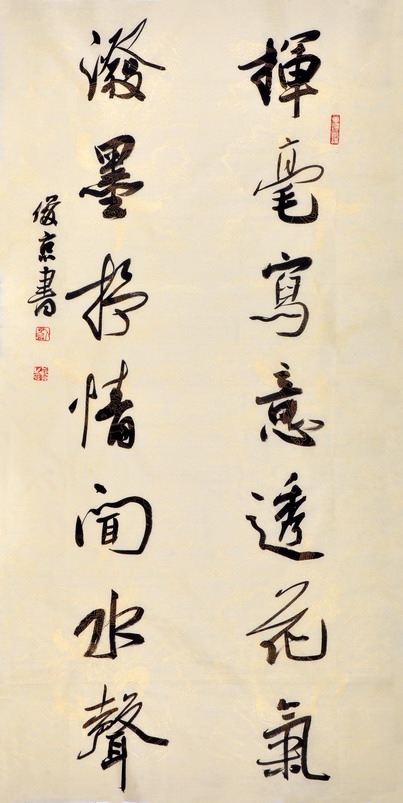 揮毫寫意透花氣
潑墨抒情聞水聲
俊京書